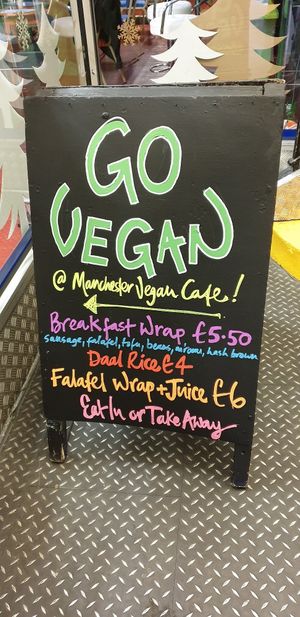 GO
VEGAN
@ Manchester Vegan Cafe!
Breakfast Wrap £5.50
sausage, falafel, tofu, beans, mushroom, hash brown
Daal Rice £4
Falafel Wrap + Juice £6
Eat In or Take Away